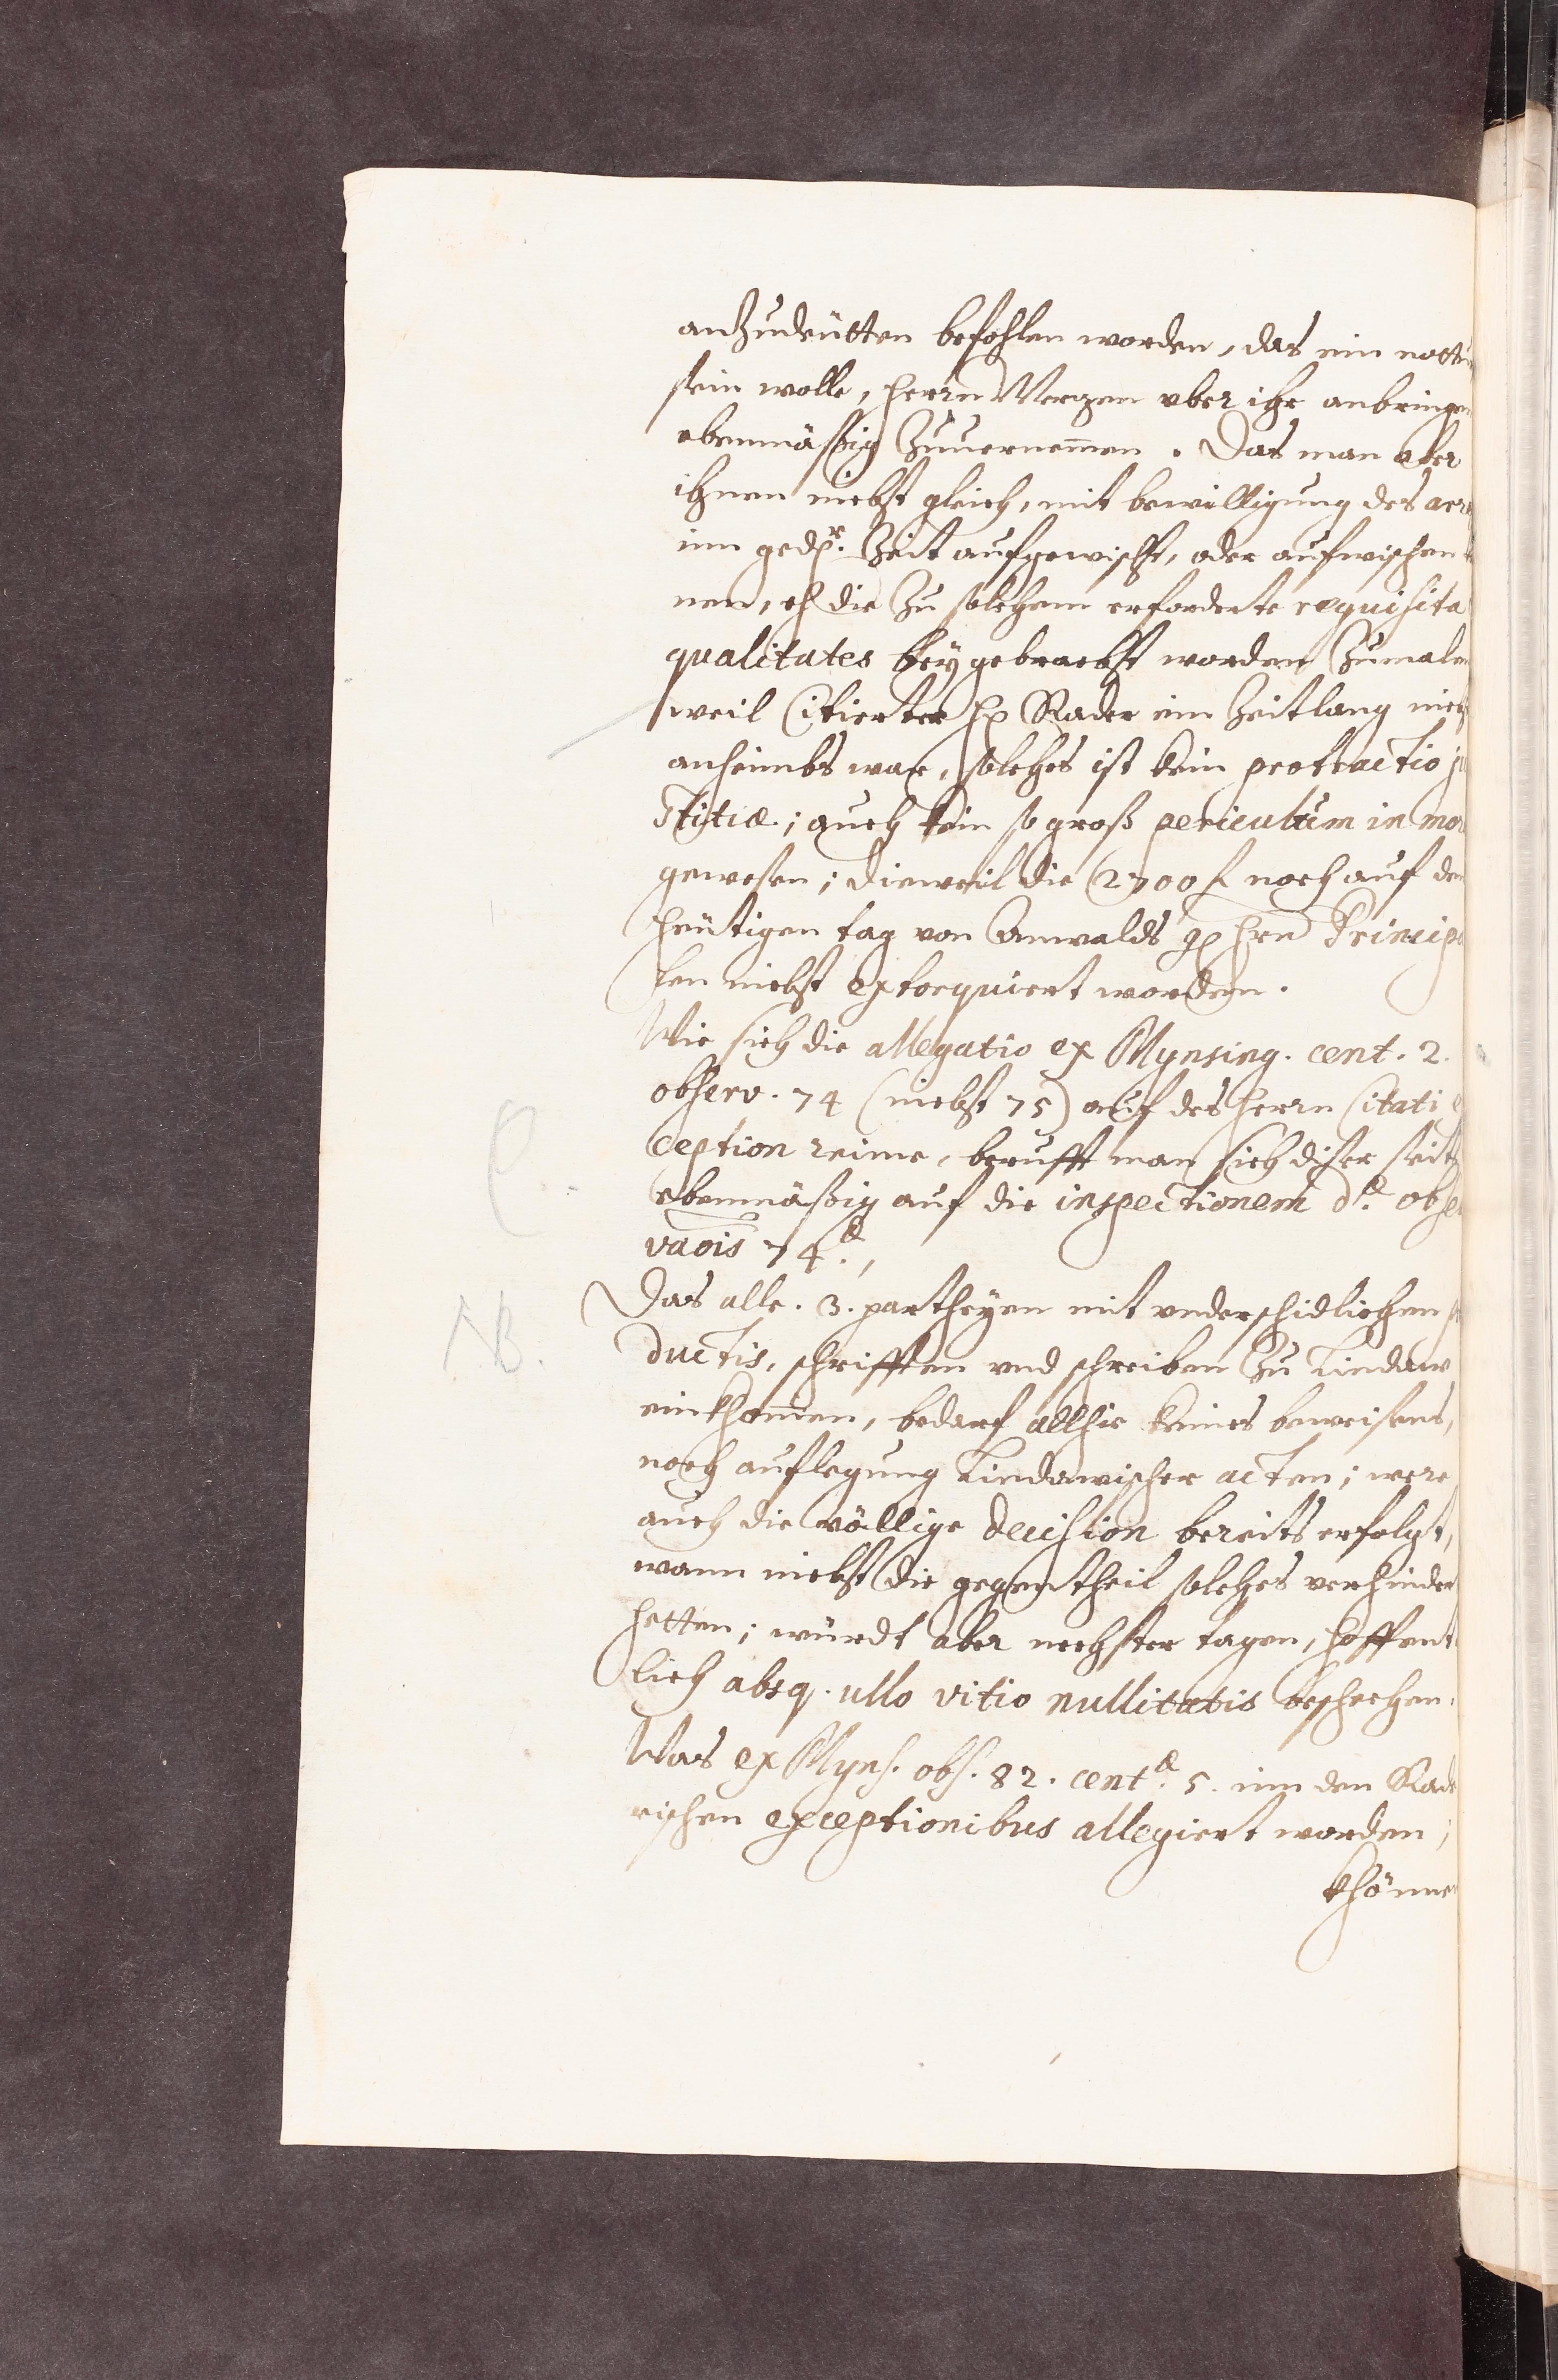 anzudeütten befohlen worden, das ein nott
sein wolle, herrn Merzen vber ihr anbringen
ebenmäßig zuuernemmen. Das man aber
ihnen nicht gleich, mit bewilligung des arre
inn gedr. Zeit aufgewischt, oder aufwischen
nen, eh die zu solchem erforderte requisita
qualitates beygebracht worden zumalen
weil Citierter Hr Rader ein Zeitlang nich
anheimbs war, solches ist kein protractio ju
stitiæ; auch kein so groß periculum in mor
gewesen; dieweil die 2700 f noch auf den
heütigen tag von Anwalds gn Hrn Principa
len nicht extorquiert worden.
Wie sich die allegatio ex Mynsing. cent. 2.
observ. 74 (nicht 75) auf des Herrn Citati e
ception reime, berufft man sich diser seits
ebenmäßig auf die inspectionem dæ. obser
vaōis 74æ.,
NB.
Das alle. 3. partheyen mit vnderschidlichen p
ductis, schrifften vnd schreiben zu Lindaw
einkhommen, bedarf allhie keines beweisens,
noch auflegung Lindawischer acten; were
auch die völlige decision bereits erfolgt,
wann nicht die gegentheil solches verhindert
hetten; würdt aber nechster tagen, hoffent
lich absq. ullo vitio nullitatis beschechen.
Was ex Myns. obs. 82. centæ. 5. inn den Rade
rischen exceptionibus allegiert worden;
khönne